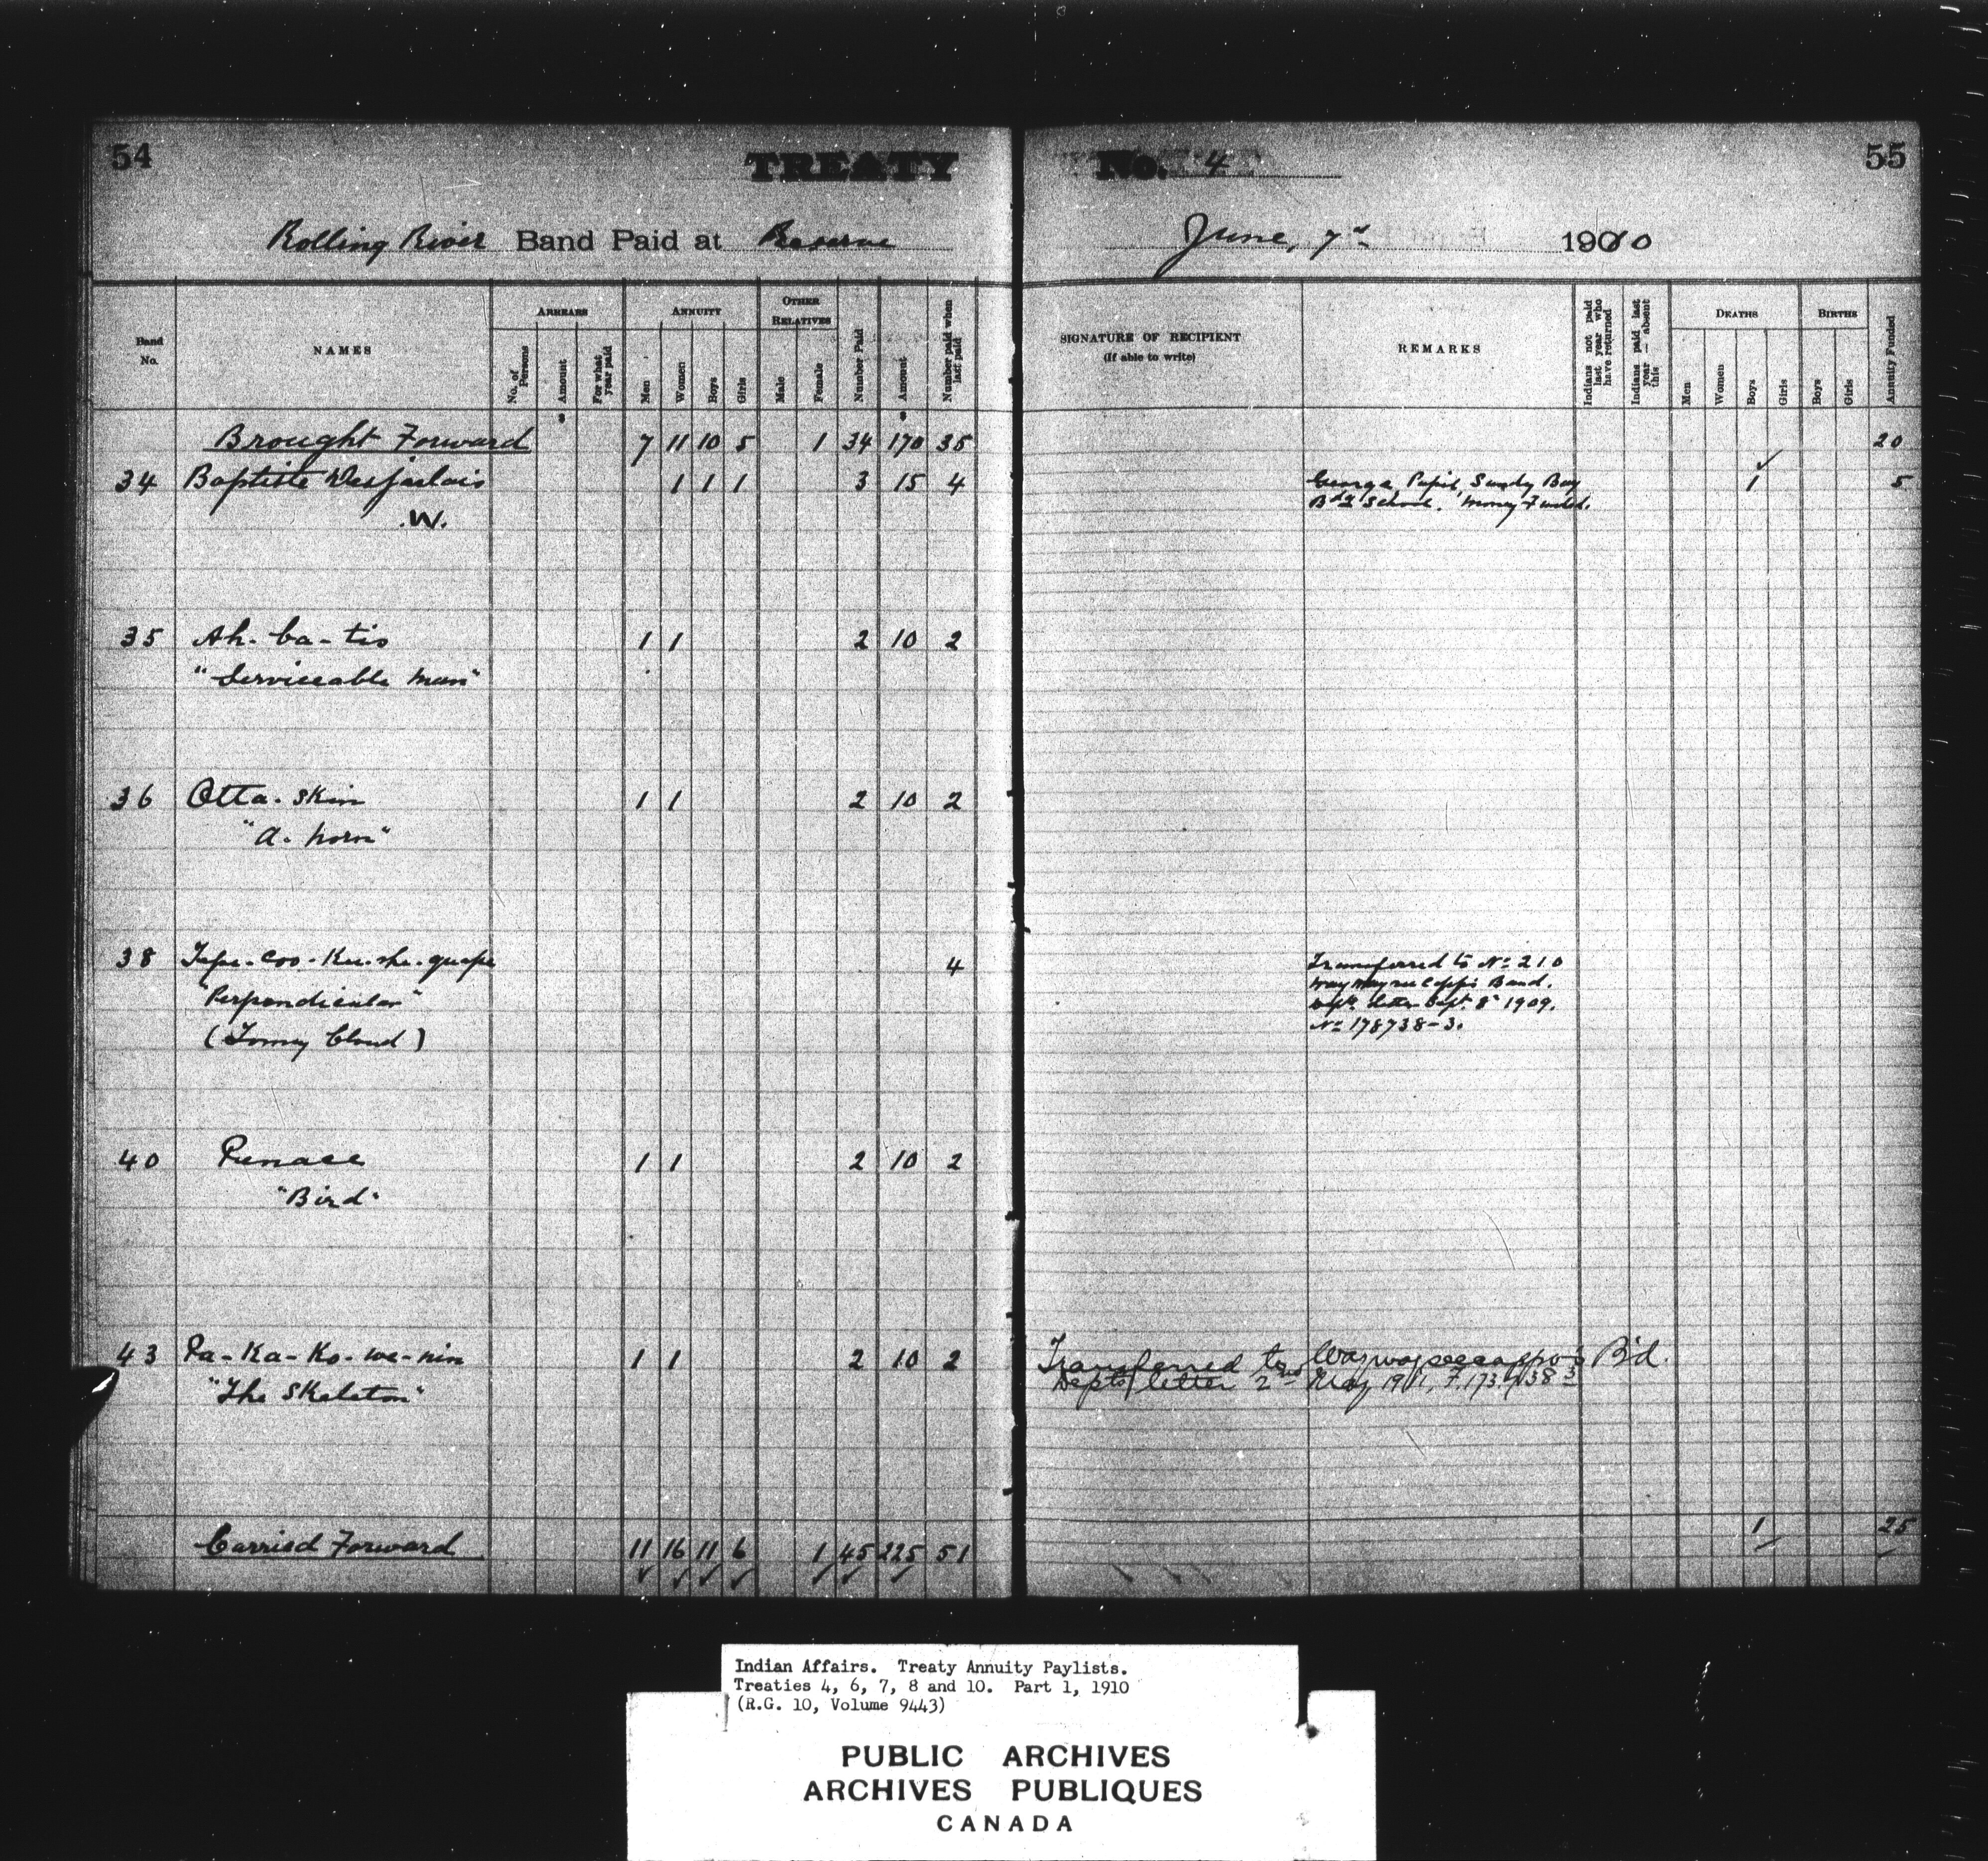 54
TREATY
Rolling River Band Paid at Reserve
Band No.
NAMES
ARREARS
No. of Persons
Amount
For what year paid
ANNUITY
Men
Women
Boys
Girls
OTHER RELATIVES
Male
Female
Number Paid
Amount
Number paid when last paid
Brought Forward 7 11 10 5 1 34 170 35
34 Baptiste Desjarlais 1 1 1 3 15 4
.W.
35 Ah-ba-tis 1 1 2 10 2
"Serviceable man"
36 Otta-skin 1 1 2 10 2
"A. horn"
38 4
"Perpendicular"
(Tomy Cloud)
40 Penace 1 1 2 10 2
"Bird"
43 Pa-Ka-Ko-we-nin 1 1 2 10 2
"The Skeleton"
Carried Forward 11 16 11 6 1 45 225 51
No. 4
55
June, 7th 1910
SIGNATURE OF RECIPIENT
(if able to write)
REMARKS
Indians not paid last year who have returned
Indians paid last year — absent this
DEATHS
Men
Women
Boys
Girls
BIRTHS
Boys
Girls
Annuity Funded
20
George, Pupil, Sandy Bay 1 5
Bdg School. Money Funded.
Transferred to No 210
Band.
Dept. letter Sept. 8th 1909.
No 178738-3.
Transferred to Waywayseecappo's B'd.
Depts letter 2nd May 1911,
1 25
Indian Affairs. Treaty Annuity Paylists.
Treaties 4, 6, 7, 8 and 10. Part 1, 1910
(R.G. 10, Volume 9443)
PUBLIC ARCHIVES
ARCHIVES PUBLIQUES
CANADA